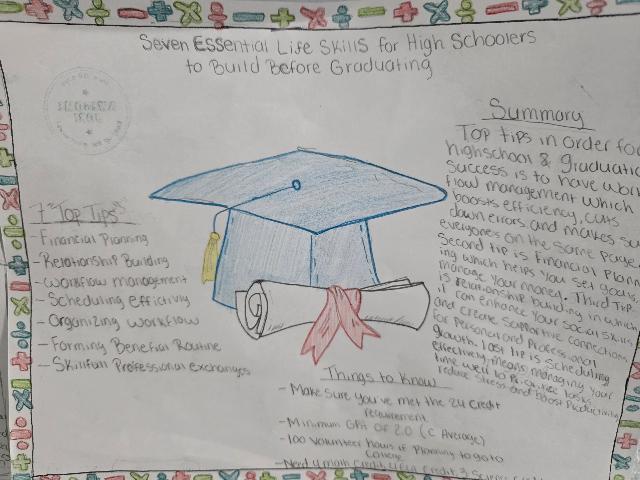 Seven Essential Life Skills for High Schoolers
to Build Before Graduating
7 "Top Tips"
-Financial Planning
-Relationship Building
-Workflow management
-Scheduling effictivly
-Organizing workflow
-Forming Benefial Routine
-Skillfull Professional exchanges
Summary
Top tips in order for
highschool & graduatio
success is to have work
flow management which
boosts efficiency, cuts
down errors and makes su
everyones on the same page.
Second tip is Financial Plann
ing which helps you set goals
manage your money. Third Tip
is relationship building in which
it can enhance your social skills
and create supportive connections
for personal and professional
growth. last tip is scheduling
effectively means managing your
time well to
reduce stress and boost productivity
Things to know
- Make sure you've met the 24 credit
requirement
- Minimum GPA of 2.0 (C Average)
- 100 volunteer hours if planning to go to
college
- Need 4 math credit, 4 Credit, 3